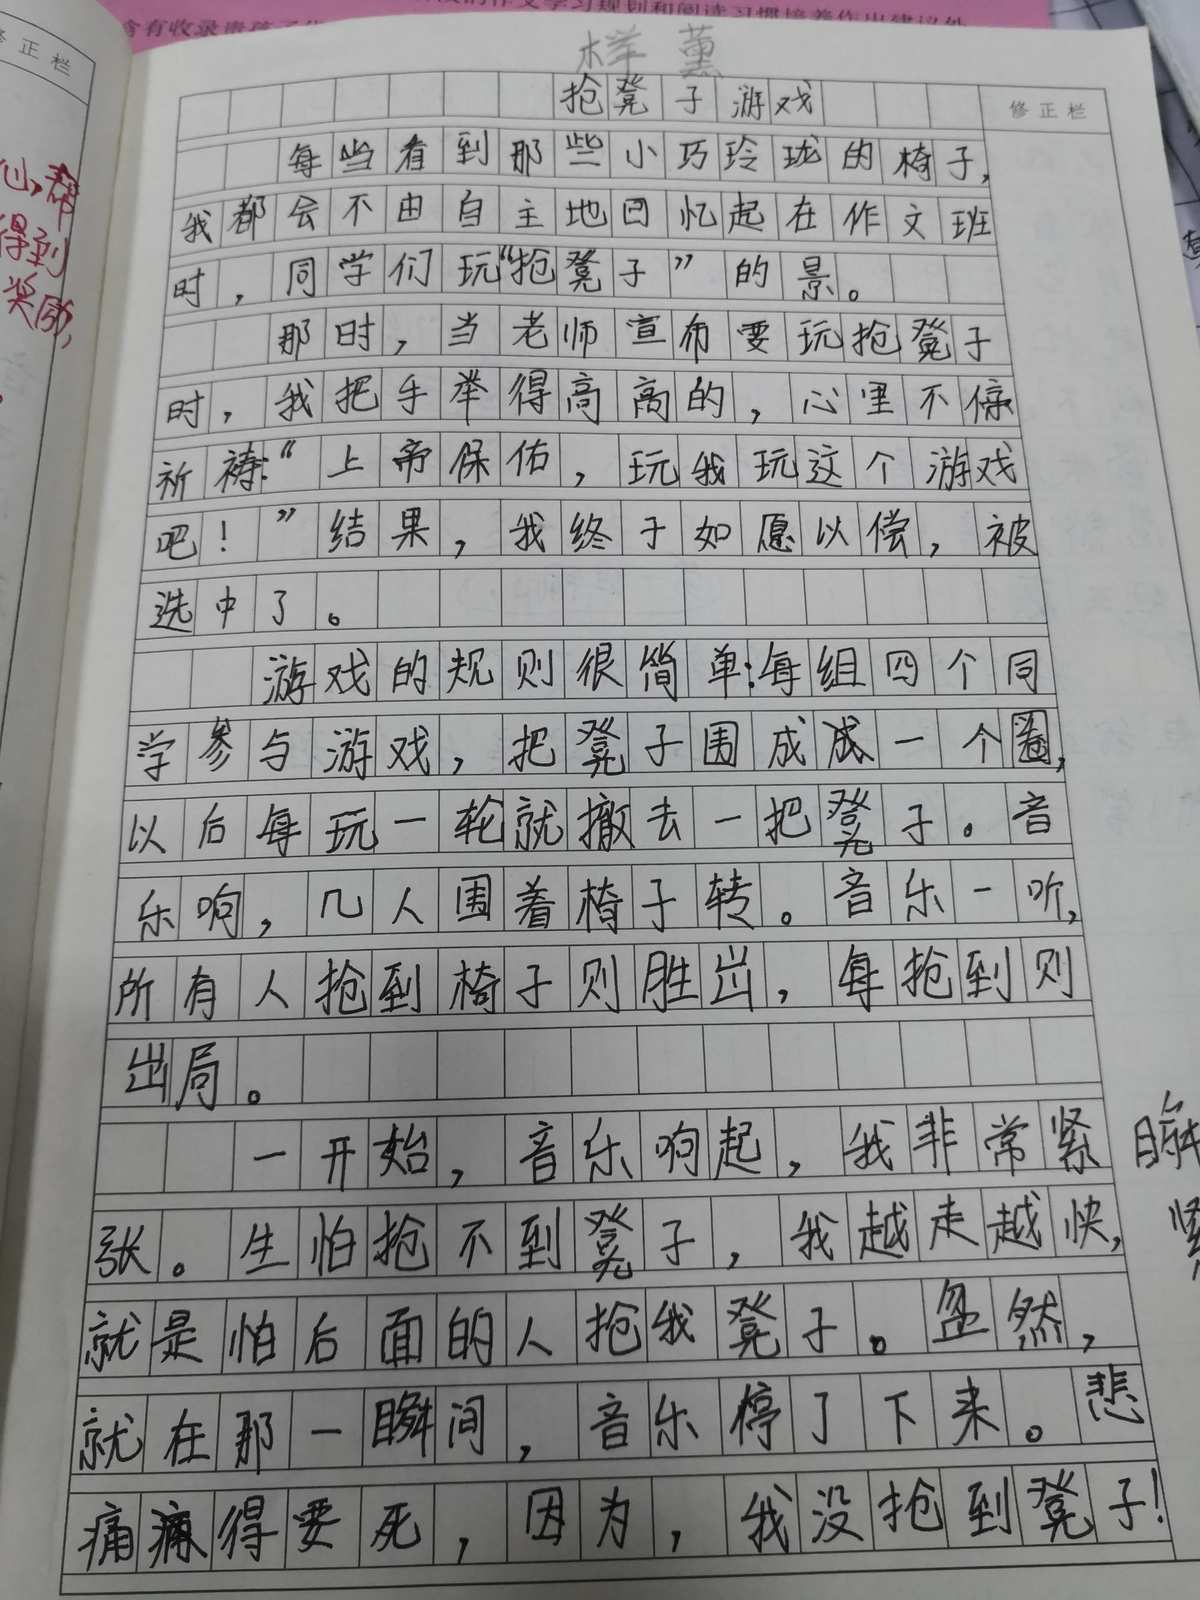 修正栏
仙,帮
得到
奖励,
薰
抢凳子游戏
修正栏
每当看到那些小巧玲珑的椅子,
我都会不由自主地回忆起在作文班
时,同学们玩“抢凳子”的景。
那时,当老师宣布要玩抢凳子
时,我把手举得高高的,心里不停
祈祷:“上帝保佑,玩我玩这个游戏
吧!”结果,我终于如愿以偿,被
选中了。
游戏的规则很简单:每组四个同
学参与游戏,把凳子围成成一个圈,
以后每玩一轮就撤去一把凳子。音
乐响,几人围着椅子转。音乐一听,
所有人抢到椅子则胜出,每抢到则
出局。
一开始,音乐响起,我非常紧
张。生怕抢不到凳子,我越走越快,
就是怕后面的人抢我凳子。忽然,
就在那一瞬间,音乐停了下来。悲
痛痛得要死,因为,我没抢到凳子!
瞬
紧